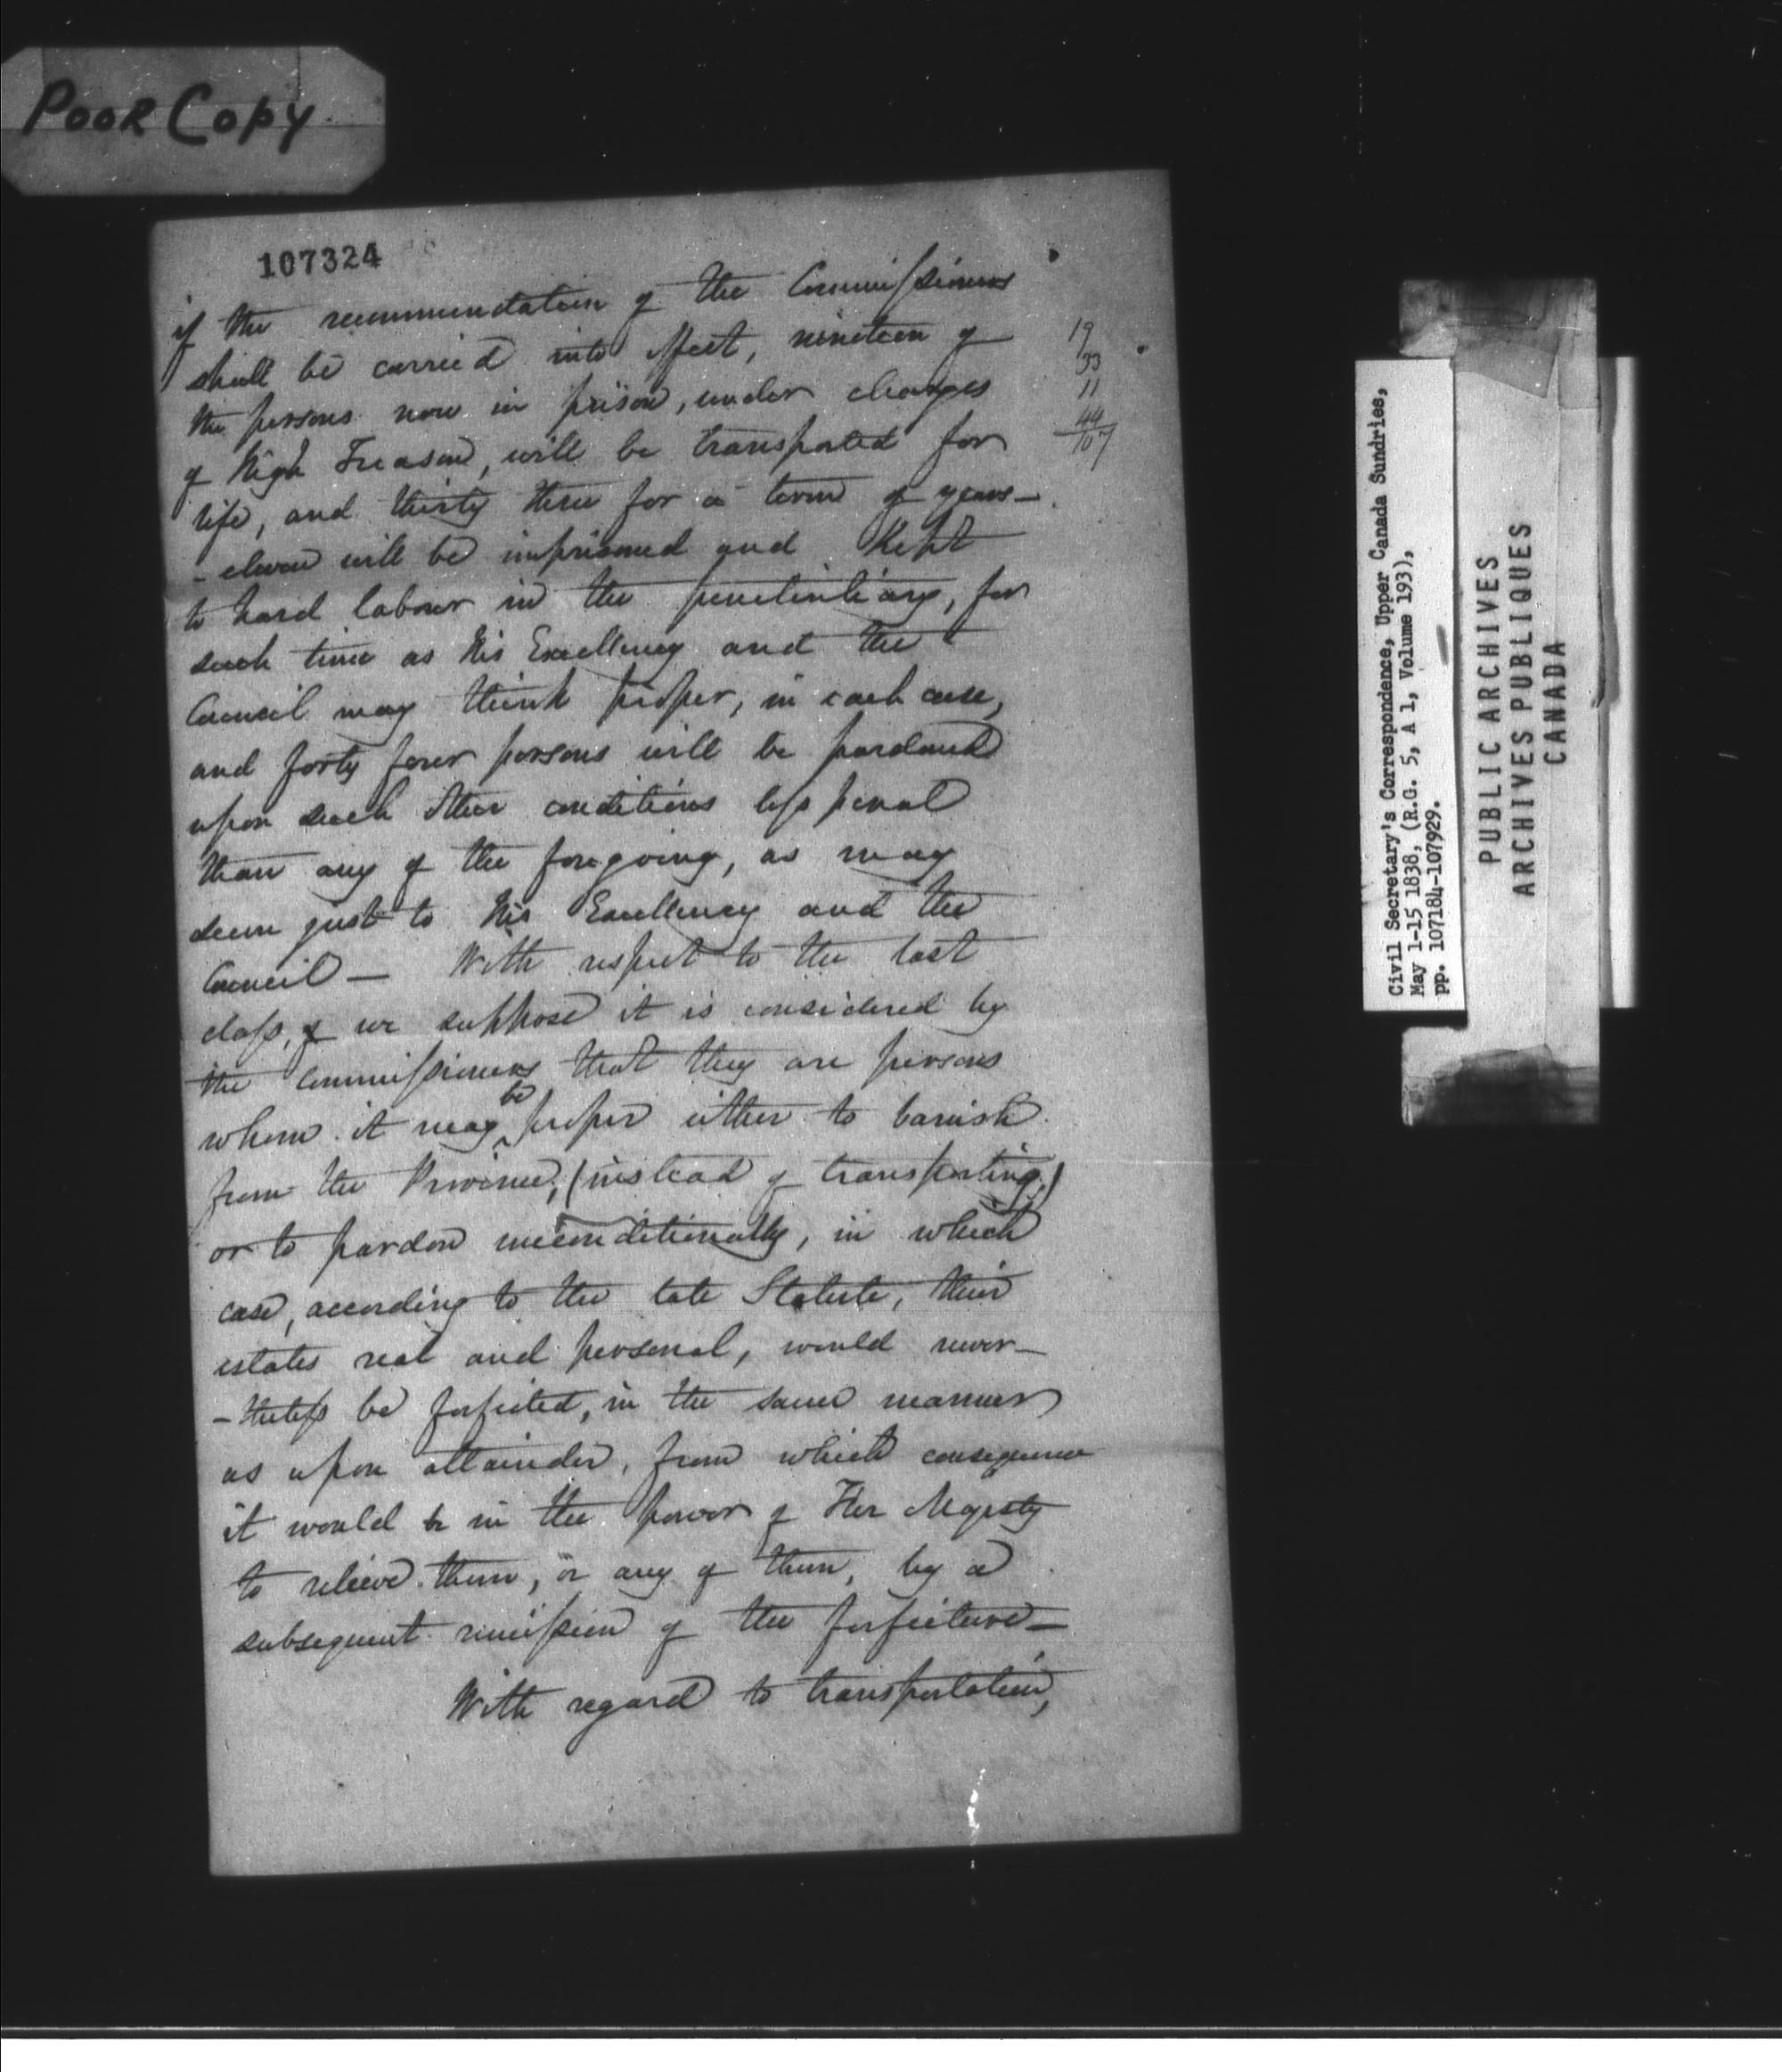 POOR COPY.
107324
if the recommendation of the Commissioners
shall be carried into effect, nineteen of
the persons now in prison, under charges
of High Treason, will be transported for
life, and thirty three for a term of years —
- eleven will be imprisoned and kept
to hard labour in the penitentiary, for
such time as His Excellency and the
Council may think proper, in each case,
and forty four persons will be pardoned
upon such other conditions less penal
than any of the foregoing, as may
seem just to His Excellency and the
Council — With respect to the last
class, we suppose it is considered by
the Commissioners that they are persons
whom it may be proper either to banish
from the Province, (instead of transporting,)
or to pardon unconditionally, in which
case, according to the late Statute, their
estates real and personal, would never-
-theless be forfeited, in the same manner
as upon attainder, from which consequence
it would be in the power of Her Majesty
to relieve them, or any of them, by a
subsequent remission of the forfeiture —
With regard to transportation,
19
33
11
44
107
Civil Secretary's Correspondence, Upper Canada Sundries,
May 1-15 1838, (R.G. 5, A 1, Volume 193),
pp. 107184-107929.
PUBLIC ARCHIVES
ARCHIVES PUBLIQUES
CANADA